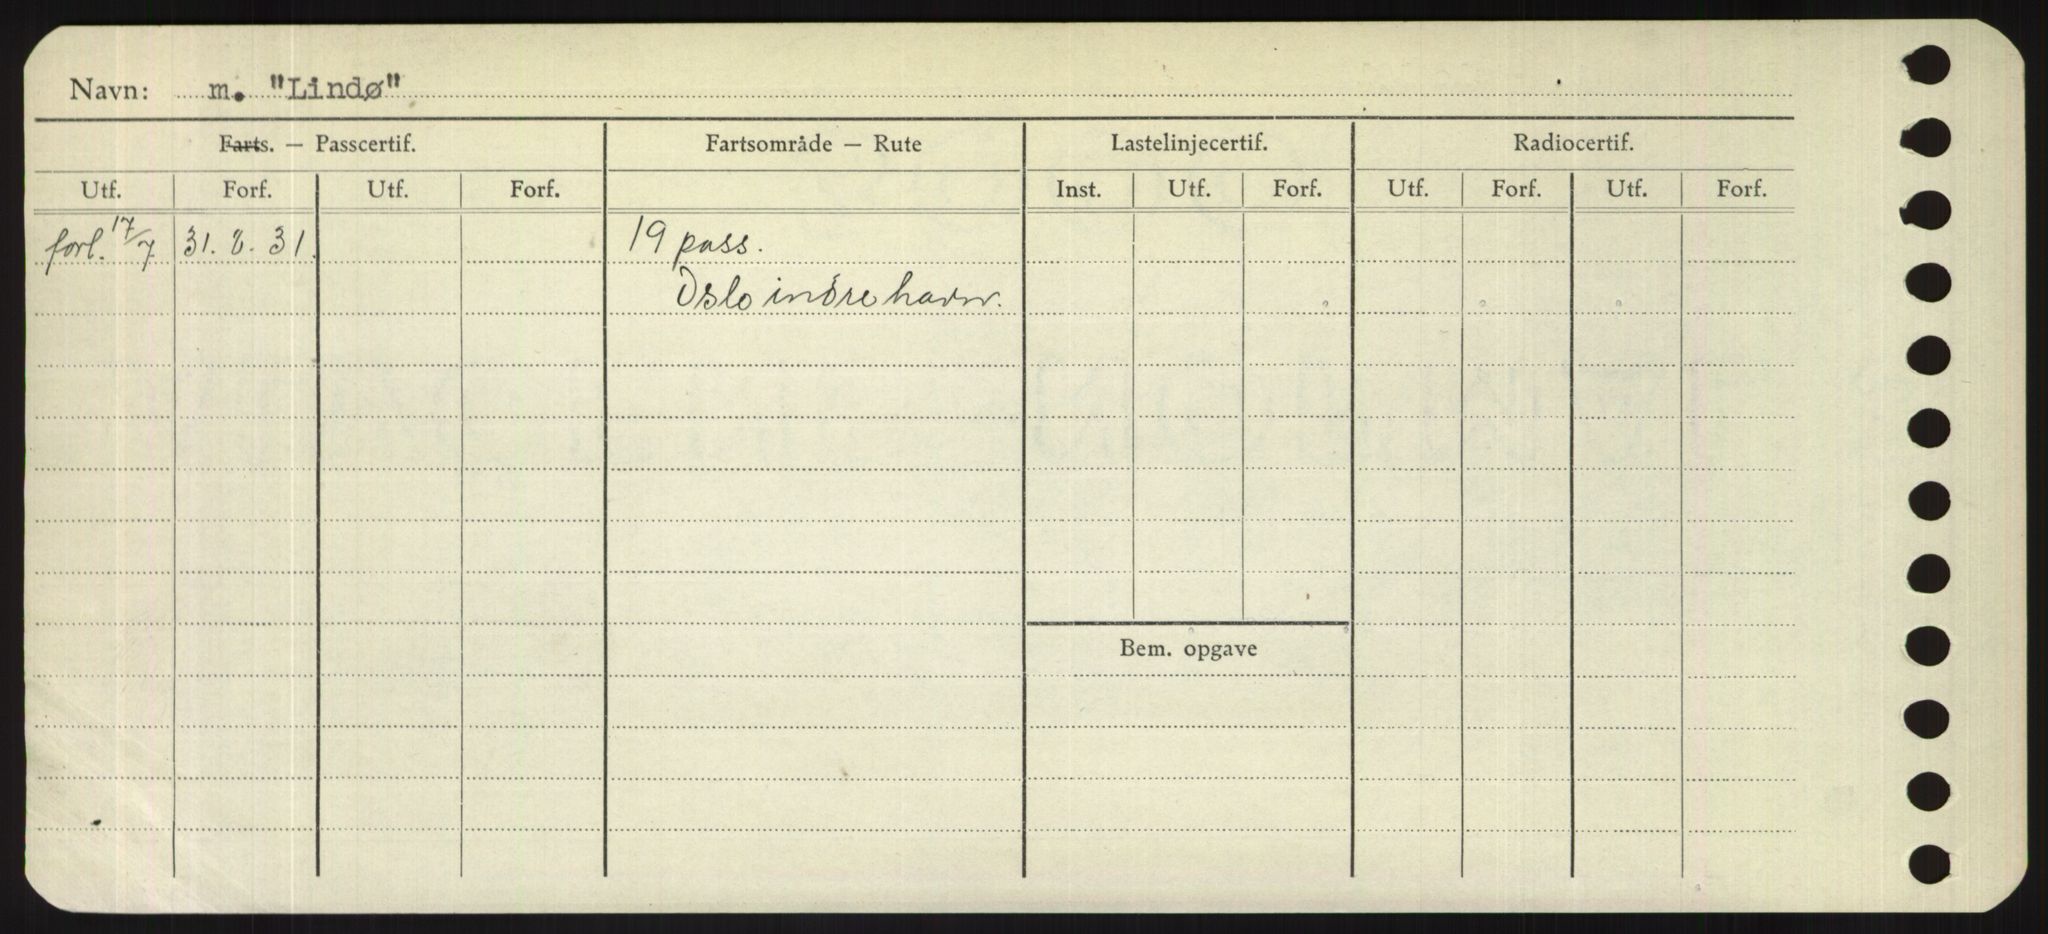 Navn: m. "Lindø"
Farts. — Passcertif. Fartsområde — Rute Lastelinjecertif. Radiocertif.
Utf. Forf. Utf. Forf. Inst. Utf. Forf. Utf. Forf. Utf. Forf.
forl. 17/7 31. 8. 31. 19 pass.
Oslo indre havn.
Bem. opgave